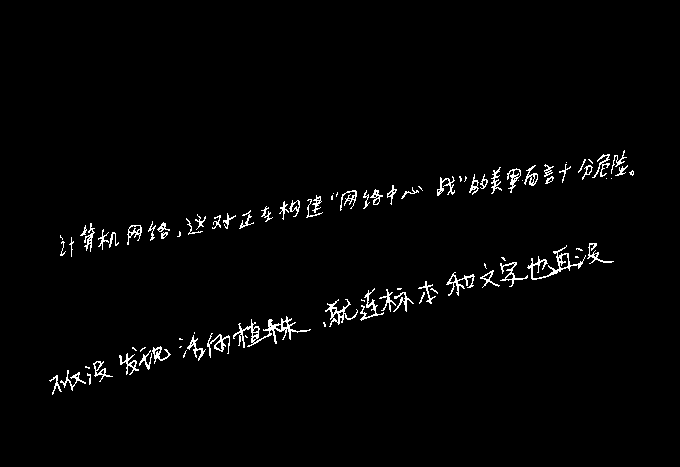 计算机网络,这对正在构建“网络中心战”的美军而言十分危险。
不仅没发现活的植株,就连标本和文字也再没